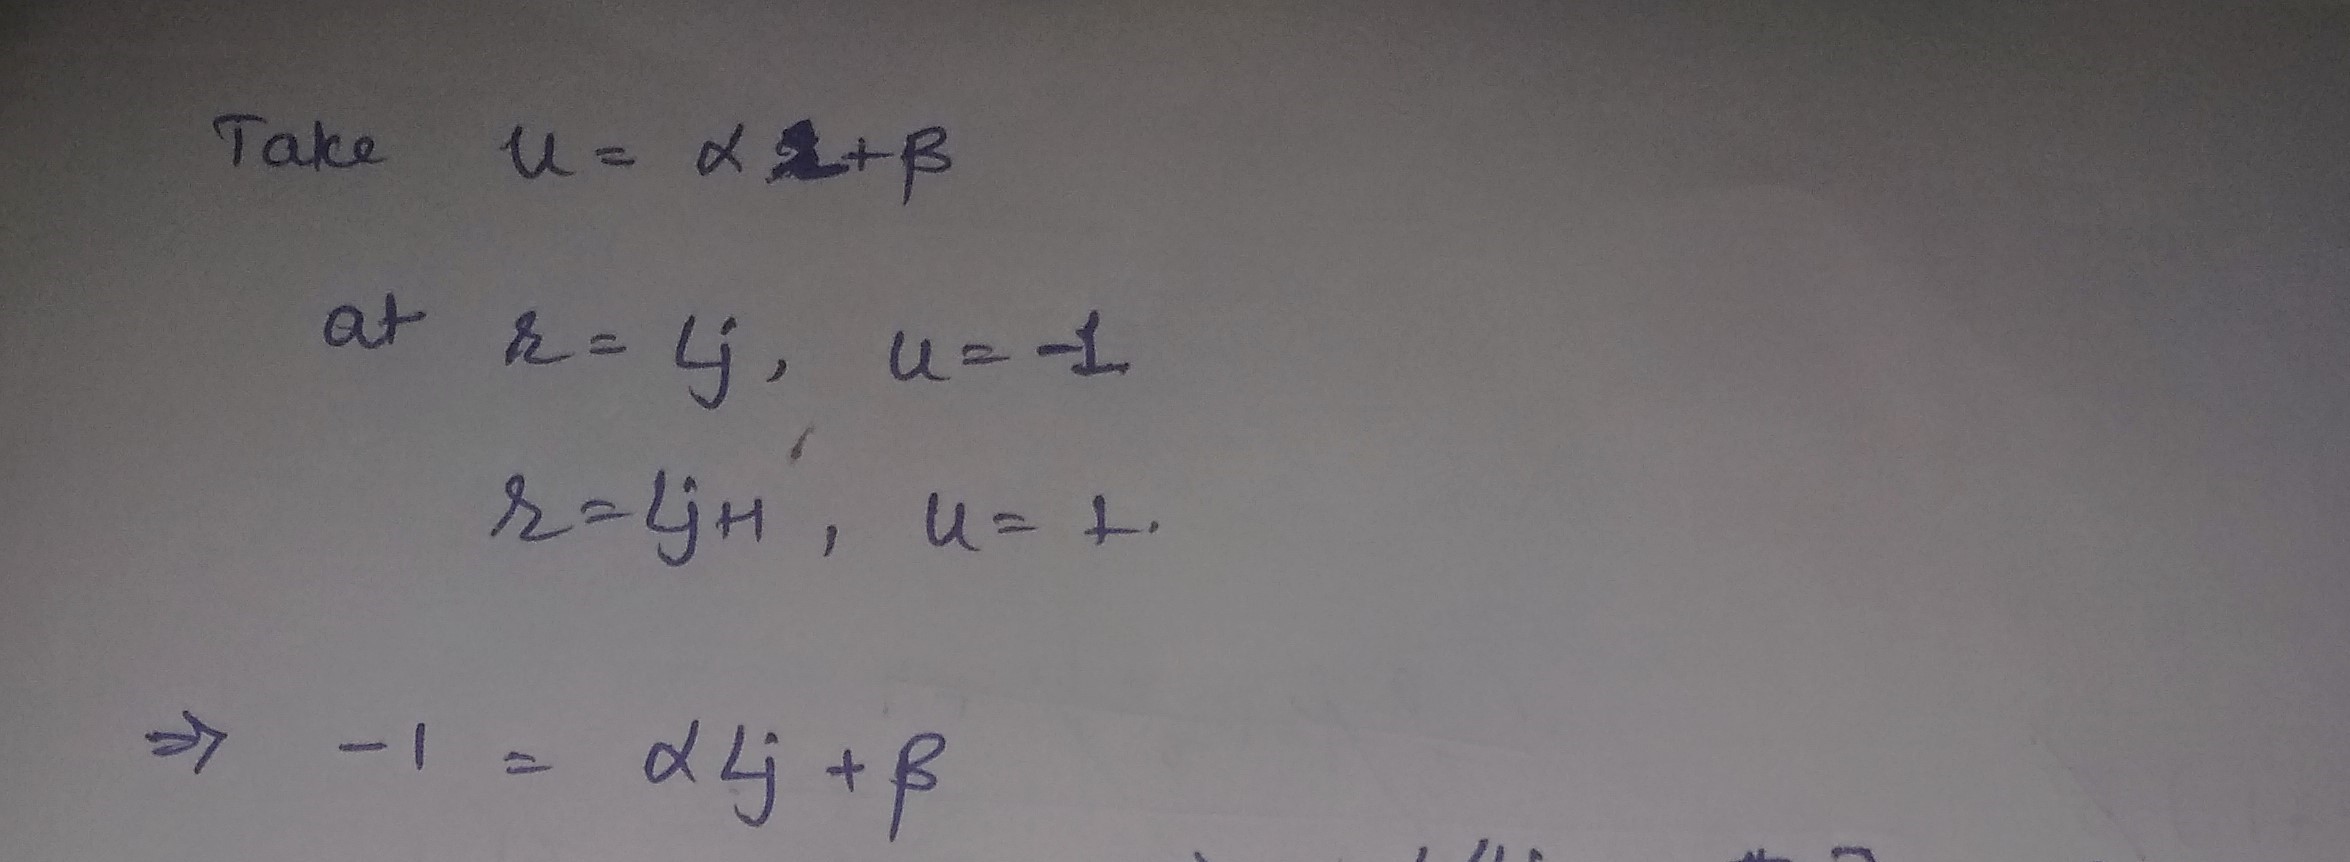 Take u = α r + β
at r = Lj, u = -1
r = Lj+1, u = 1.
⇒ -1 = α Lj + β